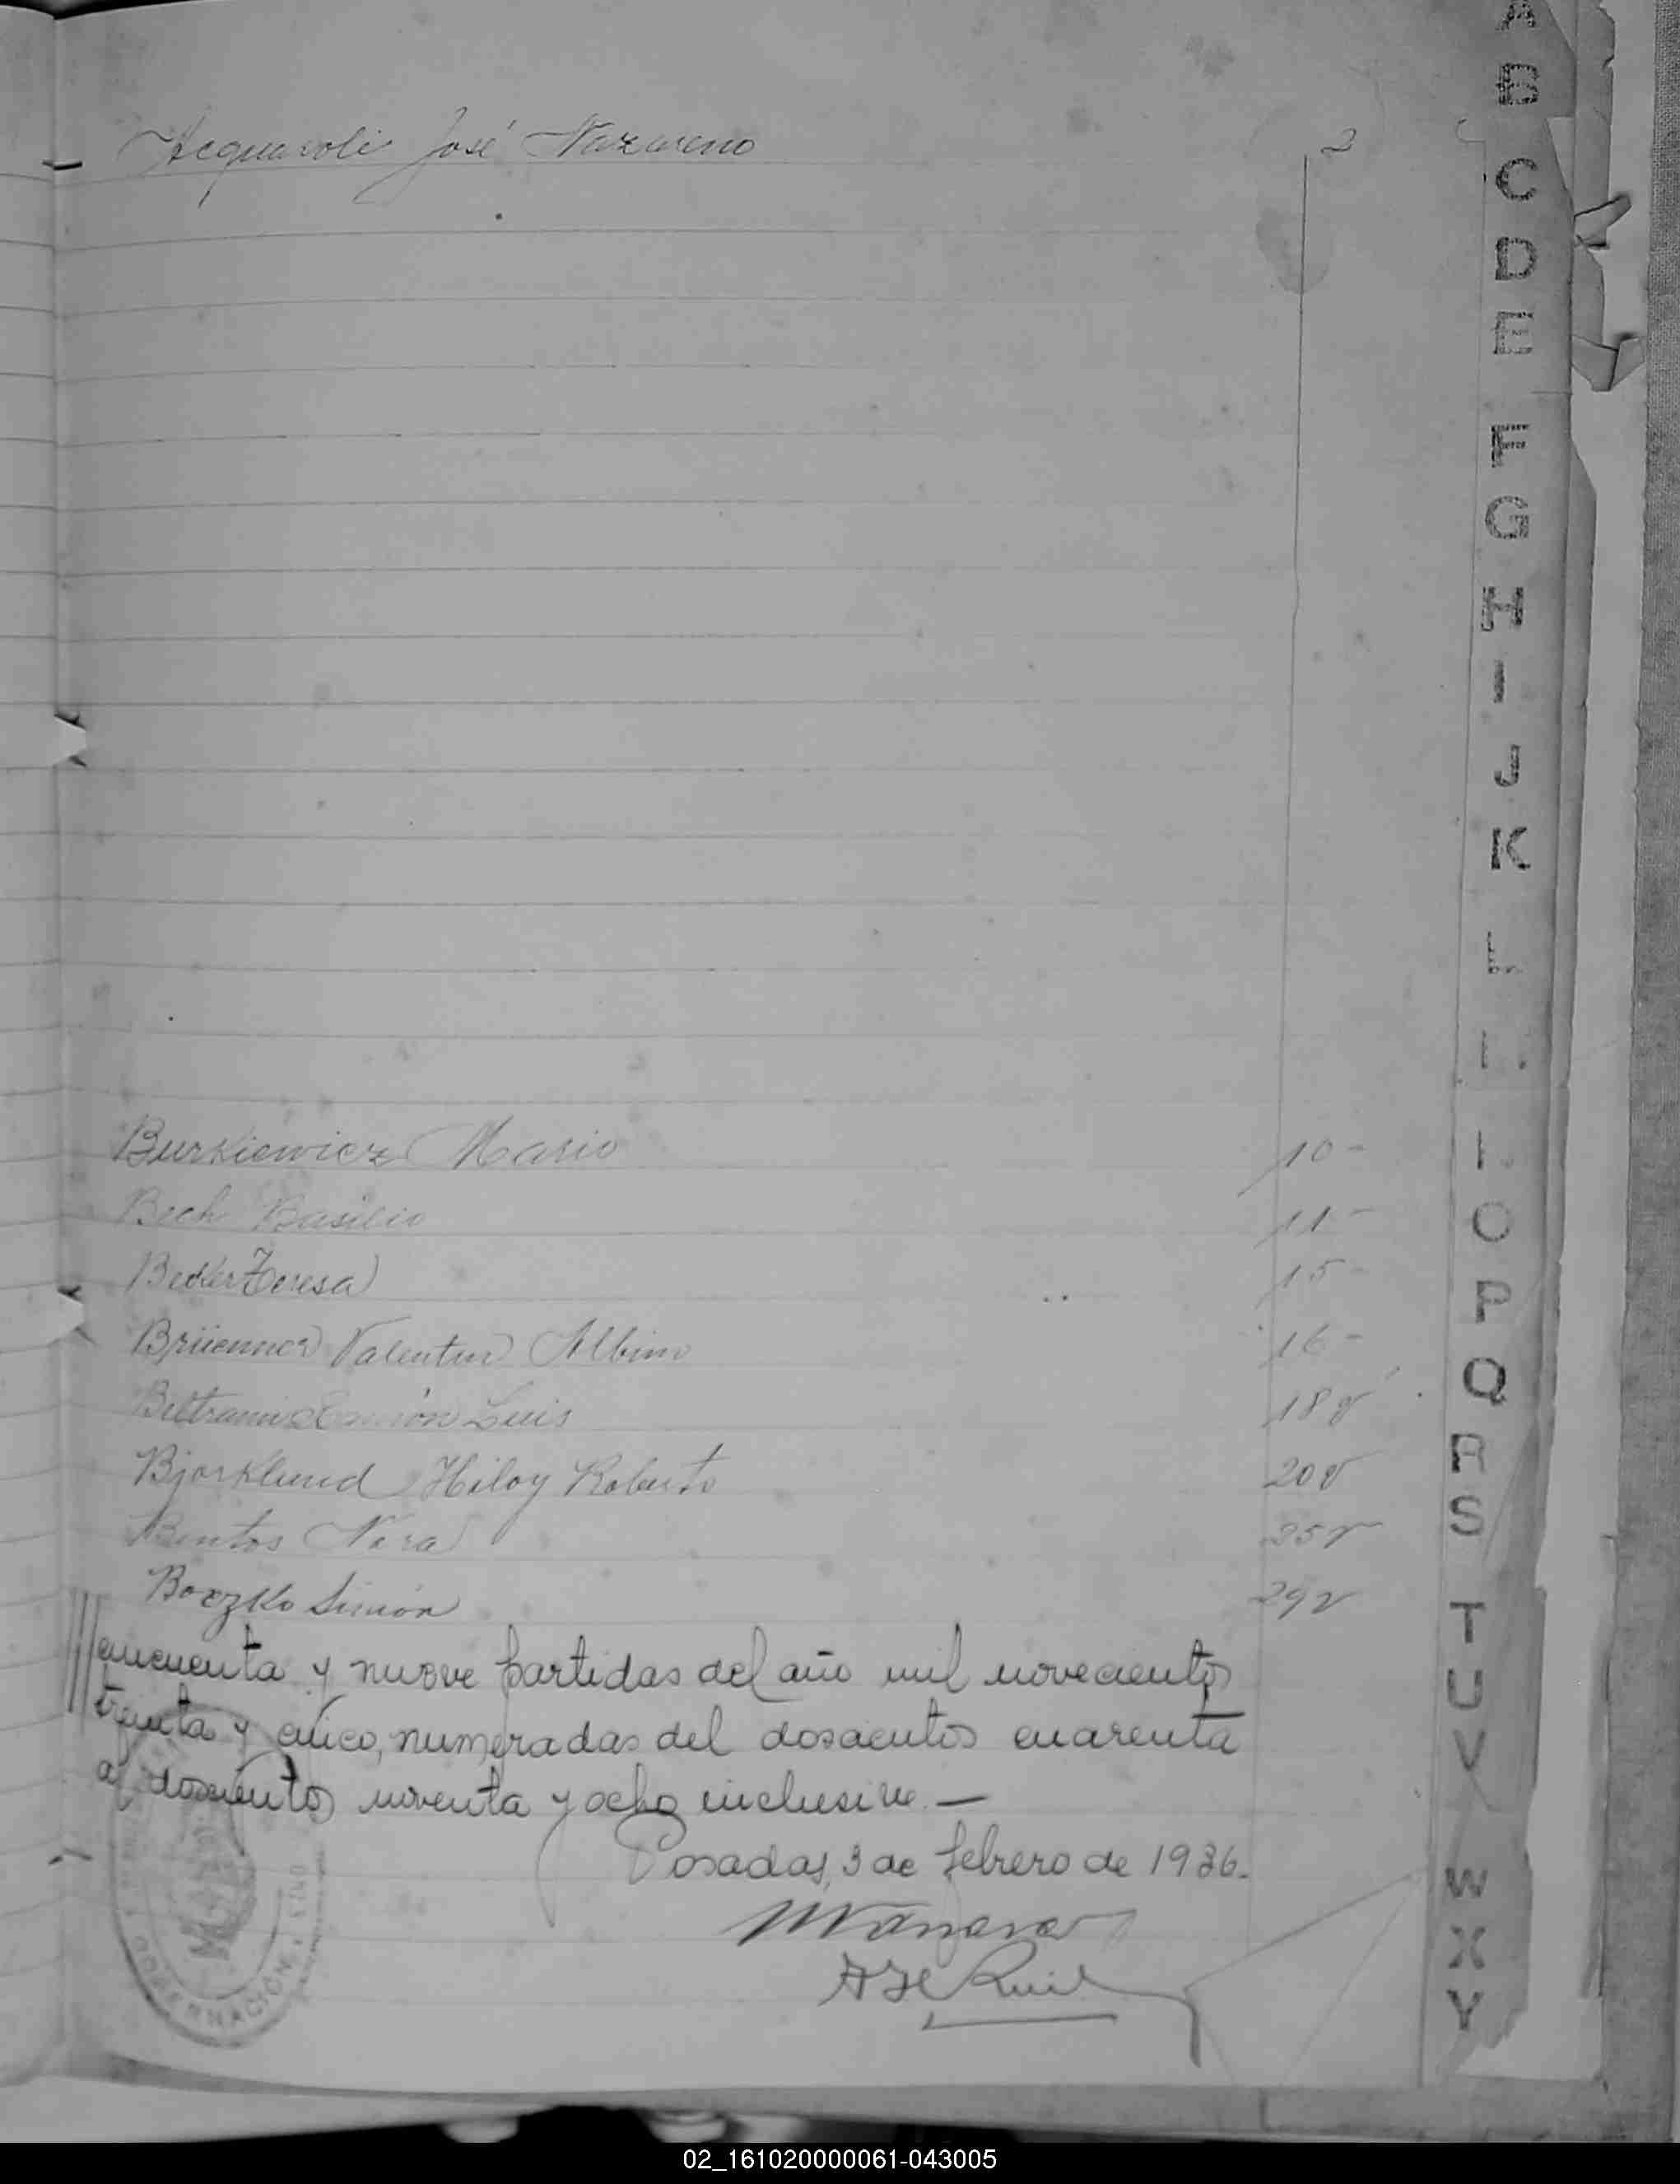 Acquaroli José Nazareno 2
Burkiewicz Mario 10-
Bech Basilio 11-
Becker Teresa 15-
Brüenner Valentin Albino 16-
Beltrami Ramón Luis 18v
Bjorklund Hiloy Roberto 20v
Bentos Nora 25v
Boczko Simón 29v
cincuenta y nueve partidas del año mil novecientos
treinta y cinco, numeradas del doscientos cuarenta
al doscientos noventa y ocho inclusive.—
Posadas, 3 de febrero de 1936.
Ruiz
GOBERNACIÓN
A
B
C
D
E
F
G
H
I
J
K
L
O
P
Q
R
S
T
U
V
W
X
Y
02_161020000061-043005